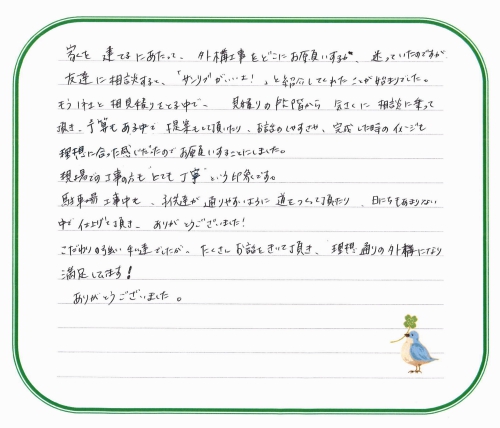 家を建てるにあたって、外構工事をどこにお願いするか、迷っていたのですが
友達に相談すると、「サンリブがいいよ!」と紹介してくれたことが始まりでした。
もう1社と相見積りをとる中で、見積りの段階から気さくに相談に乗って
頂き、予算もある中で提案もして頂いたり、お話のしやすさや、完成した時のイメージも
理想に合った感じだったのでお願いすることにしました。
現場での工事の方も"とても丁寧"という印象です。
駐車場工事中も、子供達が通りやすいように道をつくって頂たり、日にちもあまりない
中で仕上げて頂き、ありがとうございました!
こだわりの強い私達でしたが、たくさんお話をきいて頂き、理想通りの外構になり
満足してます!
ありがとうございました。